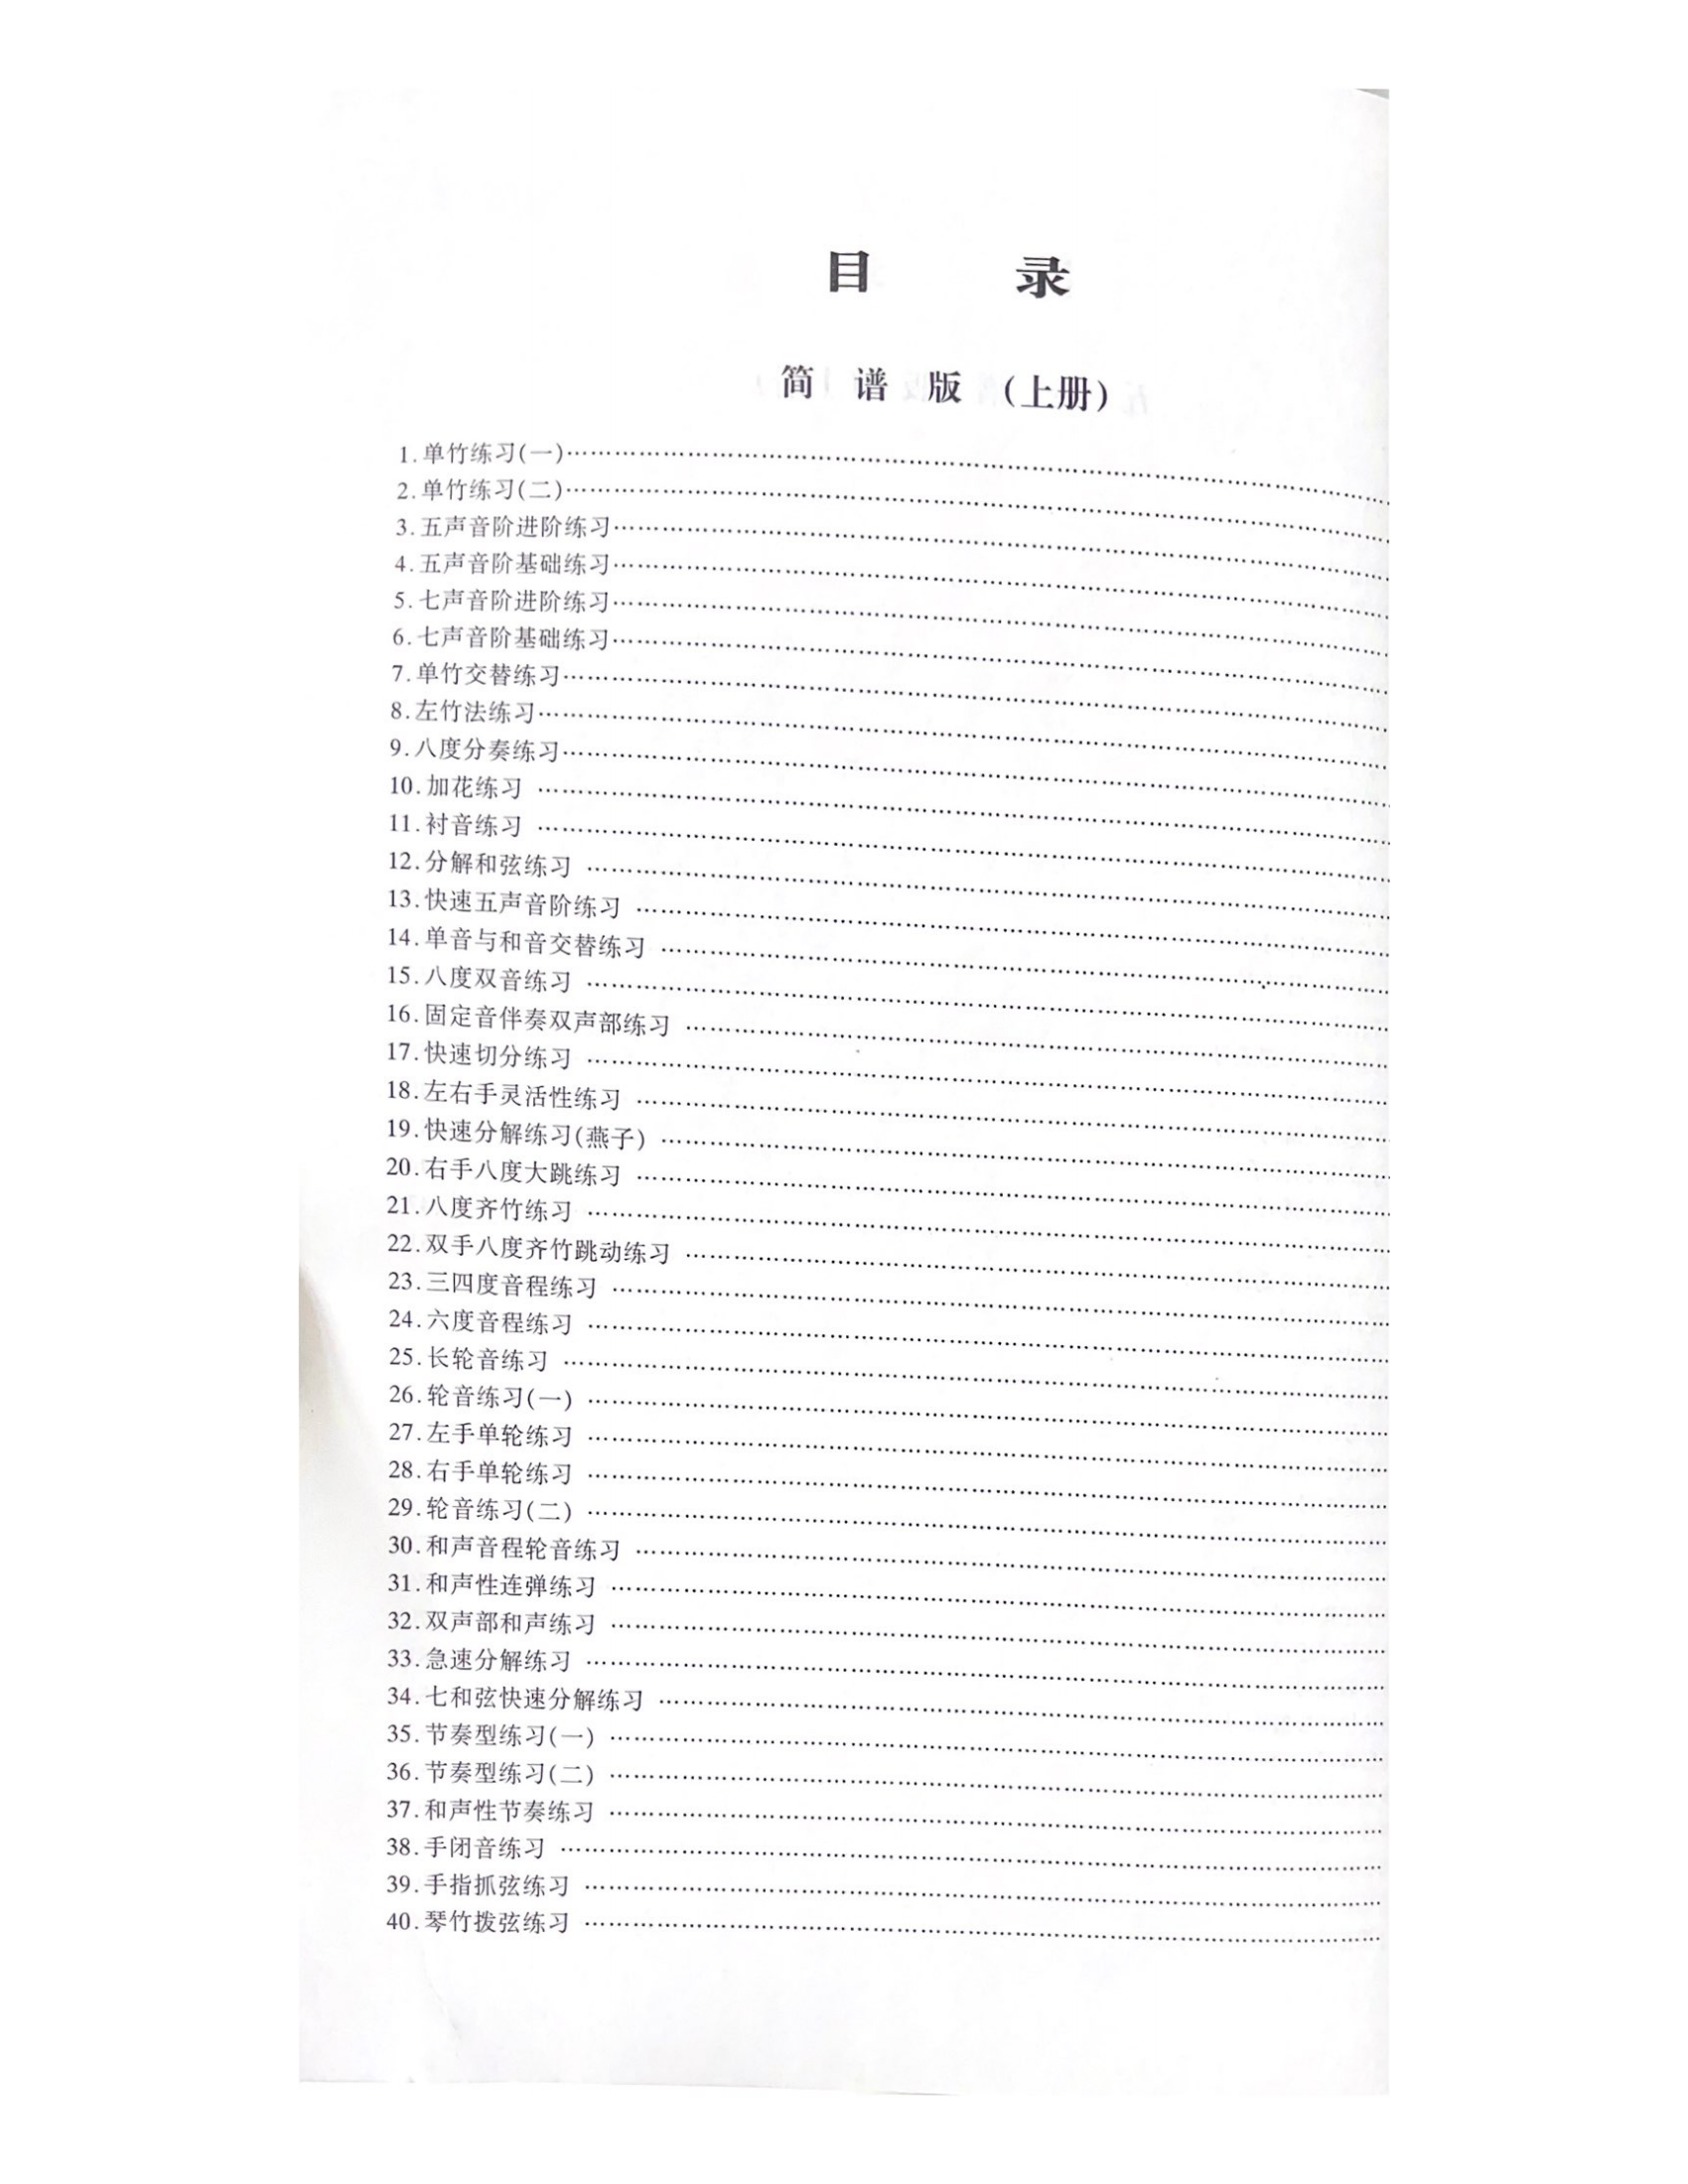 目 录
简 谱 版 (上册)
1.单竹练习(一)……………………………………………………
2.单竹练习(二)……………………………………………………
3.五声音阶进阶练习……………………………………………………
4.五声音阶基础练习……………………………………………………
5.七声音阶进阶练习……………………………………………………
6.七声音阶基础练习……………………………………………………
7.单竹交替练习……………………………………………………
8.左竹法练习……………………………………………………
9.八度分奏练习……………………………………………………
10.加花练习 ……………………………………………………
11.衬音练习 ……………………………………………………
12.分解和弦练习 ……………………………………………………
13.快速五声音阶练习 ……………………………………………………
14.单音与和音交替练习 ……………………………………………………
15.八度双音练习 ……………………………………………………
16.固定音伴奏双声部练习 ……………………………………………………
17.快速切分练习 ……………………………………………………
18.左右手灵活性练习 ……………………………………………………
19.快速分解练习(燕子) ……………………………………………………
20.右手八度大跳练习 ……………………………………………………
21.八度齐竹练习 ……………………………………………………
22.双手八度齐竹跳动练习 ……………………………………………………
23.三四度音程练习 ……………………………………………………
24.六度音程练习 ……………………………………………………
25.长轮音练习 ……………………………………………………
26.轮音练习(一) ……………………………………………………
27.左手单轮练习 ……………………………………………………
28.右手单轮练习 ……………………………………………………
29.轮音练习(二) ……………………………………………………
30.和声音程轮音练习 ……………………………………………………
31.和声性连弹练习 ……………………………………………………
32.双声部和声练习 ……………………………………………………
33.急速分解练习 ……………………………………………………
34.七和弦快速分解练习 ……………………………………………………
35.节奏型练习(一) ……………………………………………………
36.节奏型练习(二) ……………………………………………………
37.和声性节奏练习 ……………………………………………………
38.手闭音练习 ……………………………………………………
39.手指抓弦练习 ……………………………………………………
40.琴竹拨弦练习 ……………………………………………………